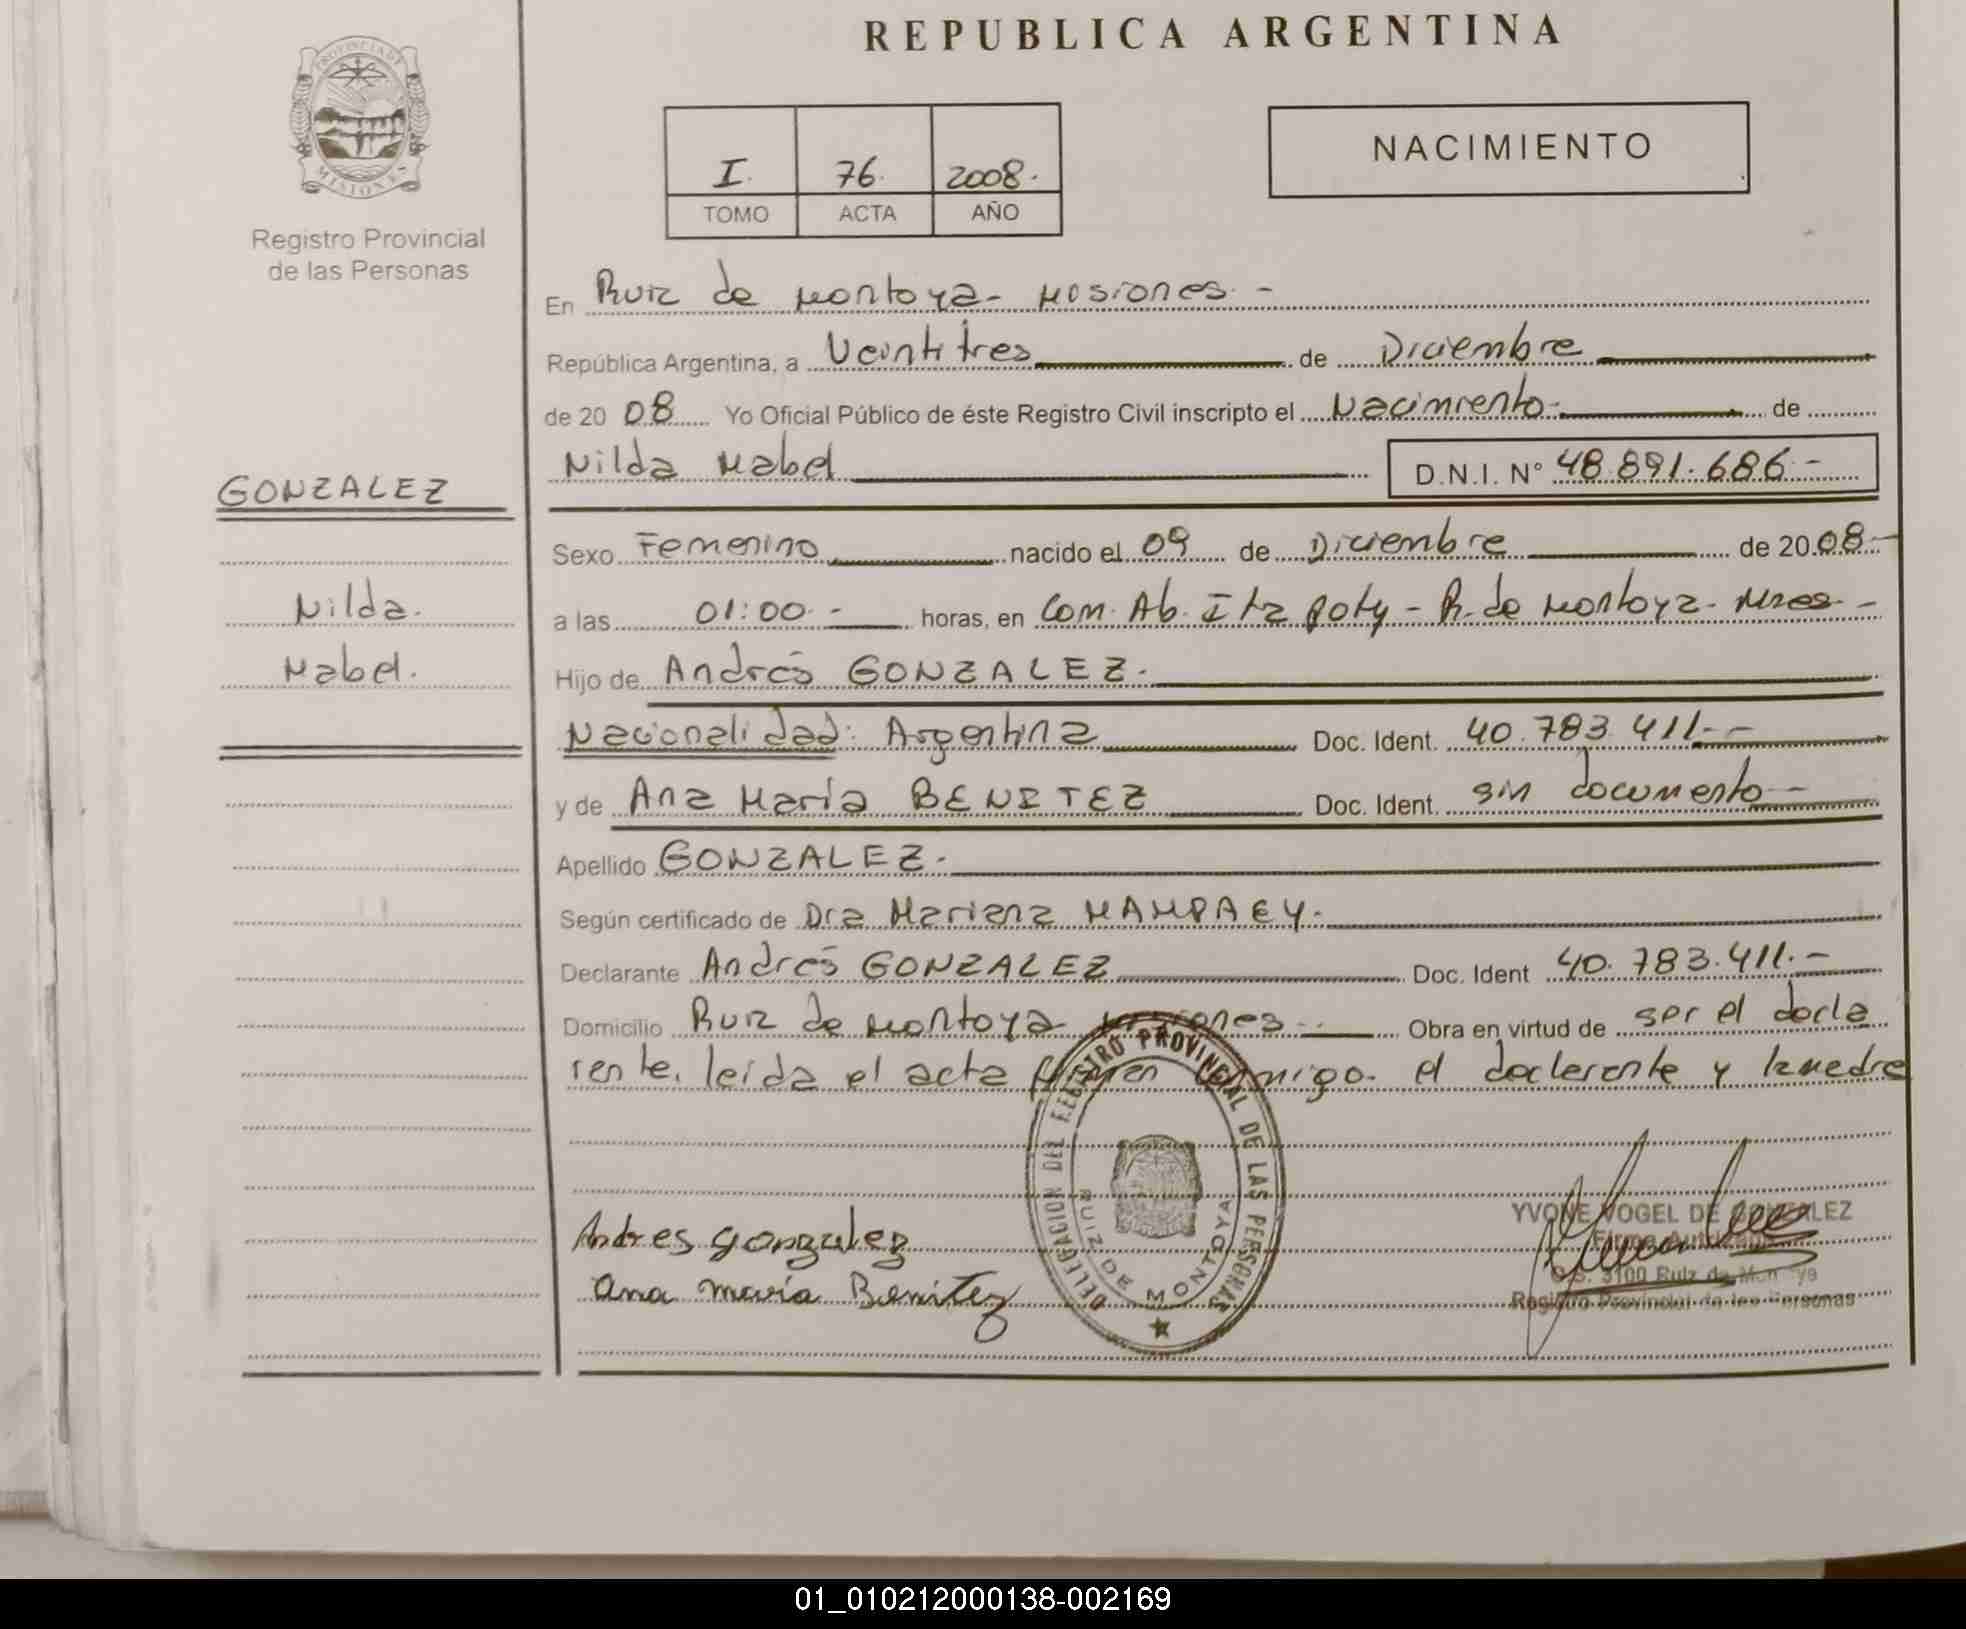 REPUBLICA ARGENTINA
PROVINCIA DE
MISIONES
Registro Provincial
de las Personas
I. 76. 2008.
TOMO ACTA AÑO
NACIMIENTO
En Ruiz de Montoya - Misiones. -
República Argentina, a Veintitres de Diciembre
de 20 08 Yo Oficial Público de éste Registro Civil inscripto el Nacimiento- de
Nilda Mabel D.N.I. N° 48.891.686.-
GONZALEZ
Nilda.
Mabel.
Sexo Femenino nacido el 09 de Diciembre de 20 08-
a las 01:00.- horas, en Com. Ab. Ita Poty - R. de Montoya - Mnes. -
Hijo de Andrés GONZALEZ.
Nacionalidad: Argentina Doc. Ident. 40.783.411.-
y de Ana María BENITEZ Doc. Ident. sin documento-
Apellido GONZALEZ.
Según certificado de Dra Mariana MAMPAEY.
Declarante Andrés GONZALEZ Doc. Ident 40.783.411.-
Domicilio Ruiz de Montoya Misiones.- Obra en virtud de ser el decla
rante. leida el acta firman conmigo el declarante y la madre
DELEGACION DEL REGISTRO PROVINCIAL DE LAS PERSONAS
RUIZ DE MONTOYA
Andres gonzalez
Ana maría Benitez
YVONE VOGEL DE GONZALEZ
Firma Autorizada
O.S. 3100 Ruiz de Montoya
Registro Provincial de las Personas
01_010212000138-002169